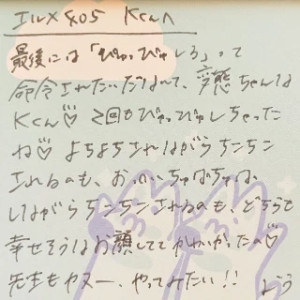 エルメ405 Kくんへ
最後には「ぴゅっぴゅしろ」って
命令されたいだなんて、変態ちんな
Kくん♡ 2回もぴゅっぴゅしちゃった
ね♡ よちよちされながらちんちん
されるのも、おっぱいちゅぱちゅぱ
しながらちんちんされるのも、どっちも
幸せそうなお顔しててかわいかったの♡
先生もやってみたい!!